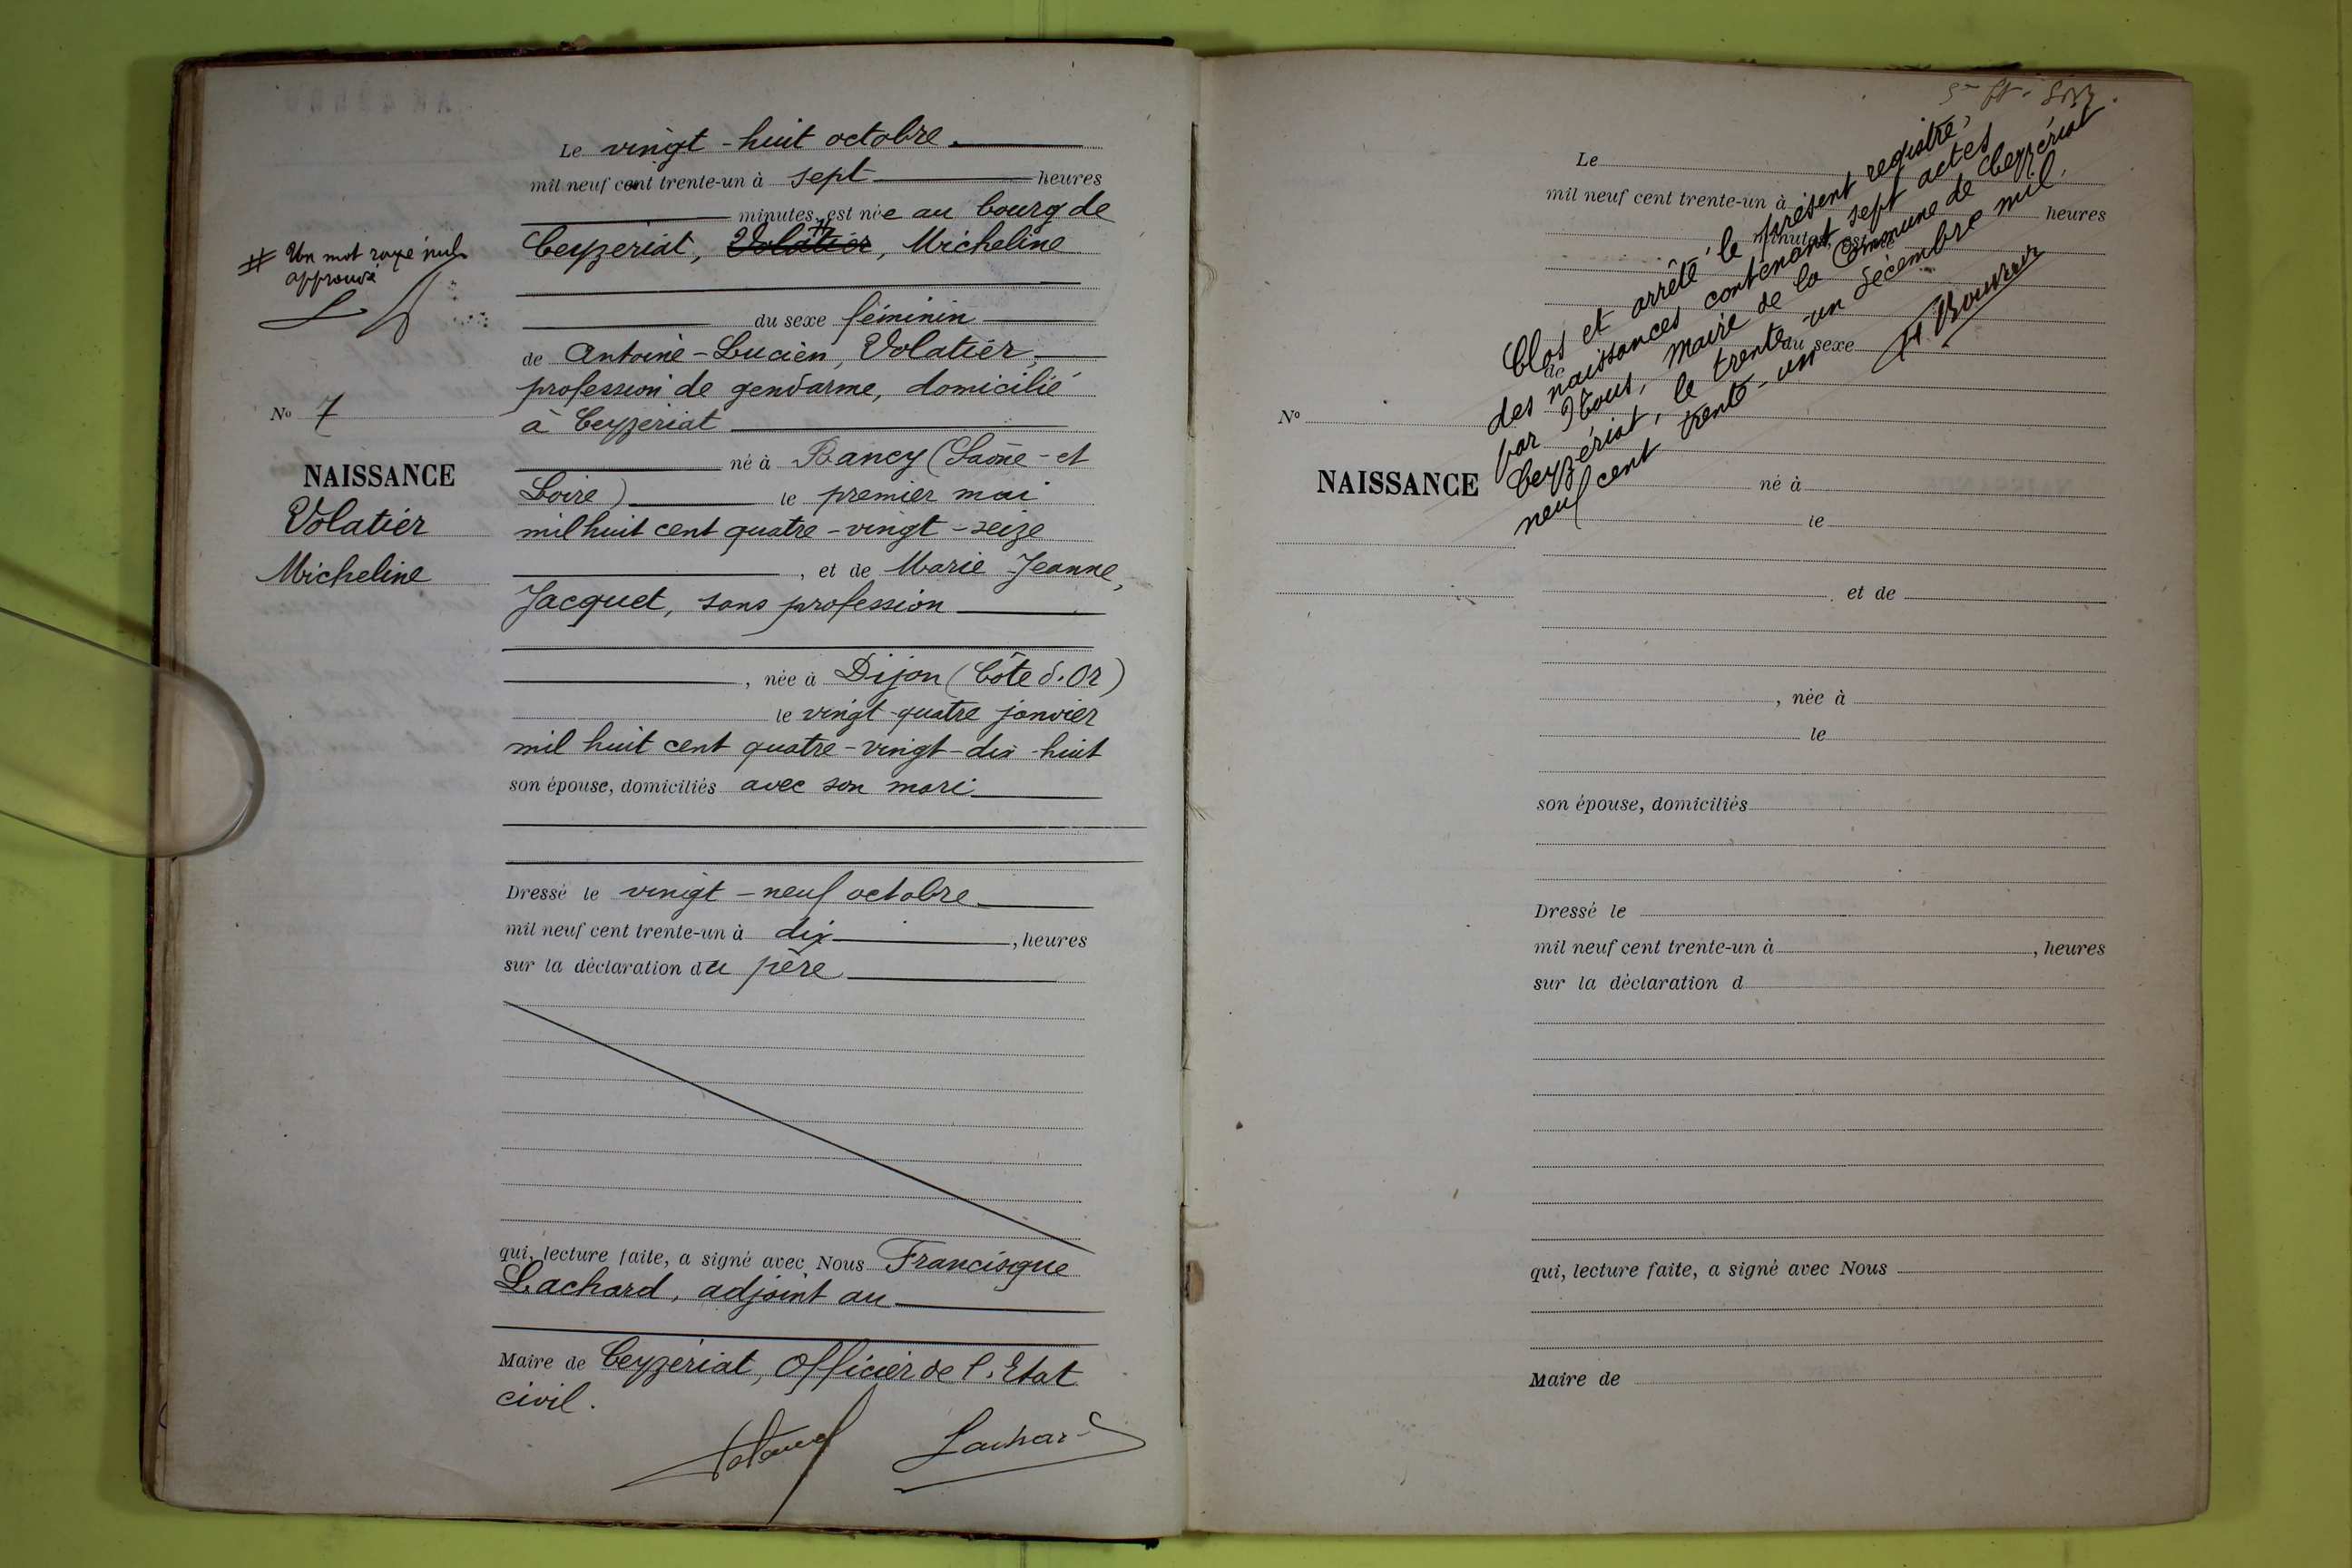 Le vingt-huit octobre
mil neuf cent trente-un à sept heures
minutes, est née au bourg de
Ceyzeriat, Volatier, Micheline
# Un mot rayé nul
approuvé
du sexe féminin
de Antoine-Lucien, Volatier,
profession de gendarme, domicilié
à Ceyzeriat
né à Bancy (Saône-et
Loire) le premier mai
mil huit cent quatre-vingt-seize
, et de Marie Jeanne,
Jacquet, sans profession
, née à Dijon (Côte d'Or)
le vingt-quatre janvier
mil huit cent quatre-vingt-dix-huit
son épouse, domiciliés avec son mari
Dressé le vingt-neuf octobre
mil neuf cent trente-un à dix , heures
sur la déclaration du père
qui, lecture faite, a signé avec Nous Francisque
Lachard, adjoint au
Maire de Ceyzeriat, Officier de l'Etat
civil.
Lachard
No 7
NAISSANCE
Volatier
Micheline
Clos et arrêté le présent registre,
des naissances contenant sept actes
par Nous, Maire de la Commune de Ceyzériat
Ceyzériat, le trente-un décembre mil
neuf cent trente-un
Le
mil neuf cent trente-un à
heures
minutes, est né
du sexe
de
No
NAISSANCE
né à
le
, et de
, née à
le
son épouse, domiciliés
Dressé le
mil neuf cent trente-un à , heures
sur la déclaration d
qui, lecture faite, a signé avec Nous
Maire de